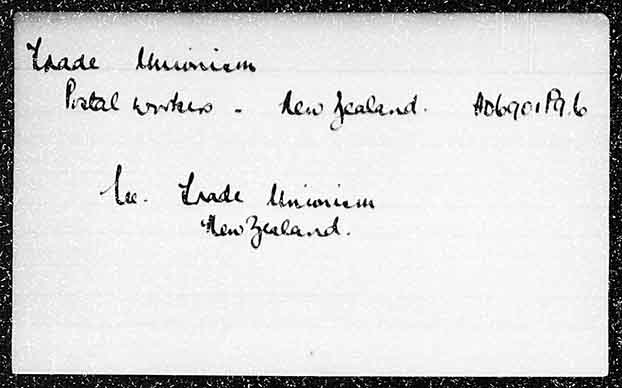 Trade Unionism
Postal workers - New Zealand.
See. Trade Unionism
New Zealand.